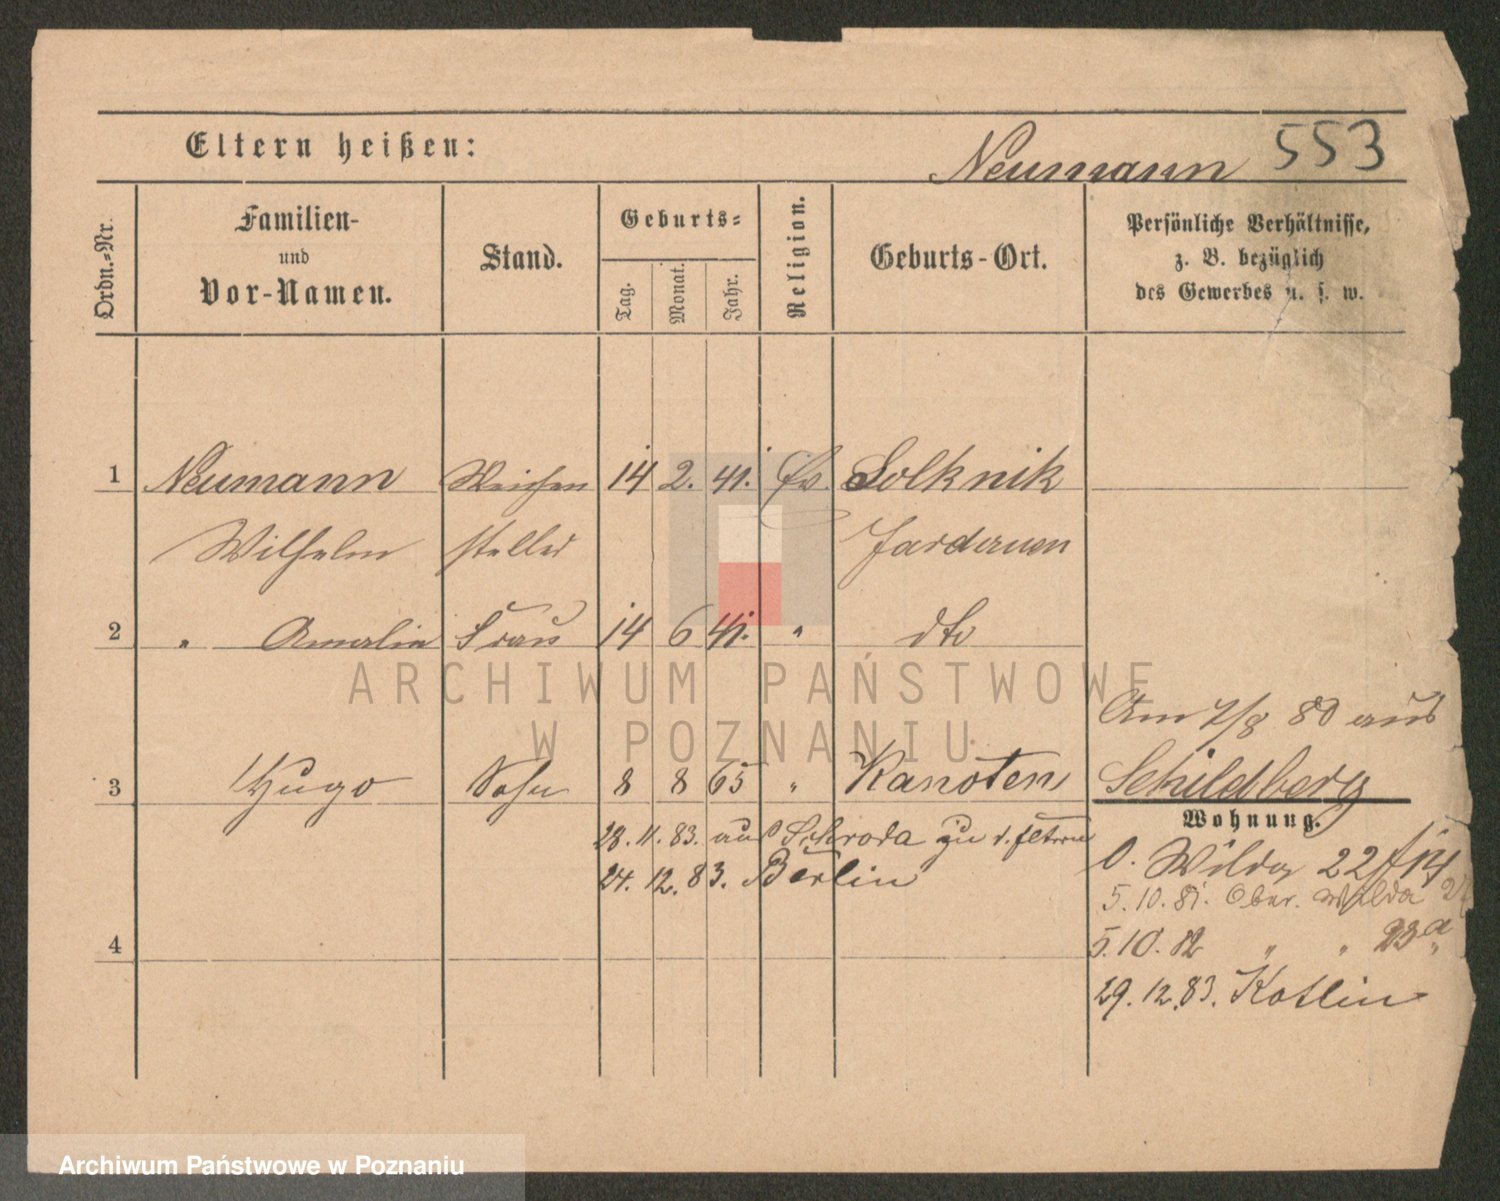 Eltern heißen:
Neumann 553
Ordn.=Nr.
Familien-
und
Vor-Namen.
Stand.
Geburts=
Tag.
Monat.
Jahr.
Religion.
Geburts-Ort.
Persönliche Verhältnisse,
z. B. bezüglich
des Gewerbes u. s. w.
1 Neumann Weichen 14 2. 41. Ev. Solknik
Wilhelm steller
2 " Amalie Frau 14 6 41. " dto
ARCHIWUM PAŃSTWOWE
W POZNANIU
Am 7/8 80 aus
3 Hugo Sohn 8 8 65 " Kanoten Schildberg
Wohnung.
28. 11. 83. aus Schroda zu d. Eltern
24. 12. 83. Berlin
O. Wilda 22
5. 10. 81. Ober. Wilda
4
5. 10. 82 " " 23a
29. 12. 83. Kotlin
Archiwum Państwowe w Poznaniu